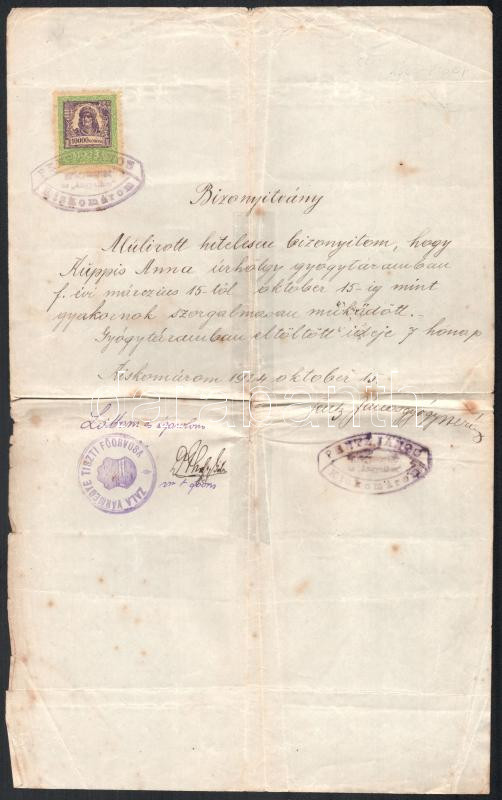 10000 KORONA
Kiskomárom
Bizonyitvány
Alúlirott hitelesen bizonyitom, hogy
Küppis Anna úrhölgy gyógytáramban
f. évi márczius 15-től október 15-ig mint
gyakornok szorgalmasan működött.-
Gyógytáramban eltöltött ideje 7 honap
Kiskomárom 1924 október 15.
Láttam
ZALA VÁRMEGYE TISZTI FŐORVOSA
JÁNOS
Kiskomárom
darabanth